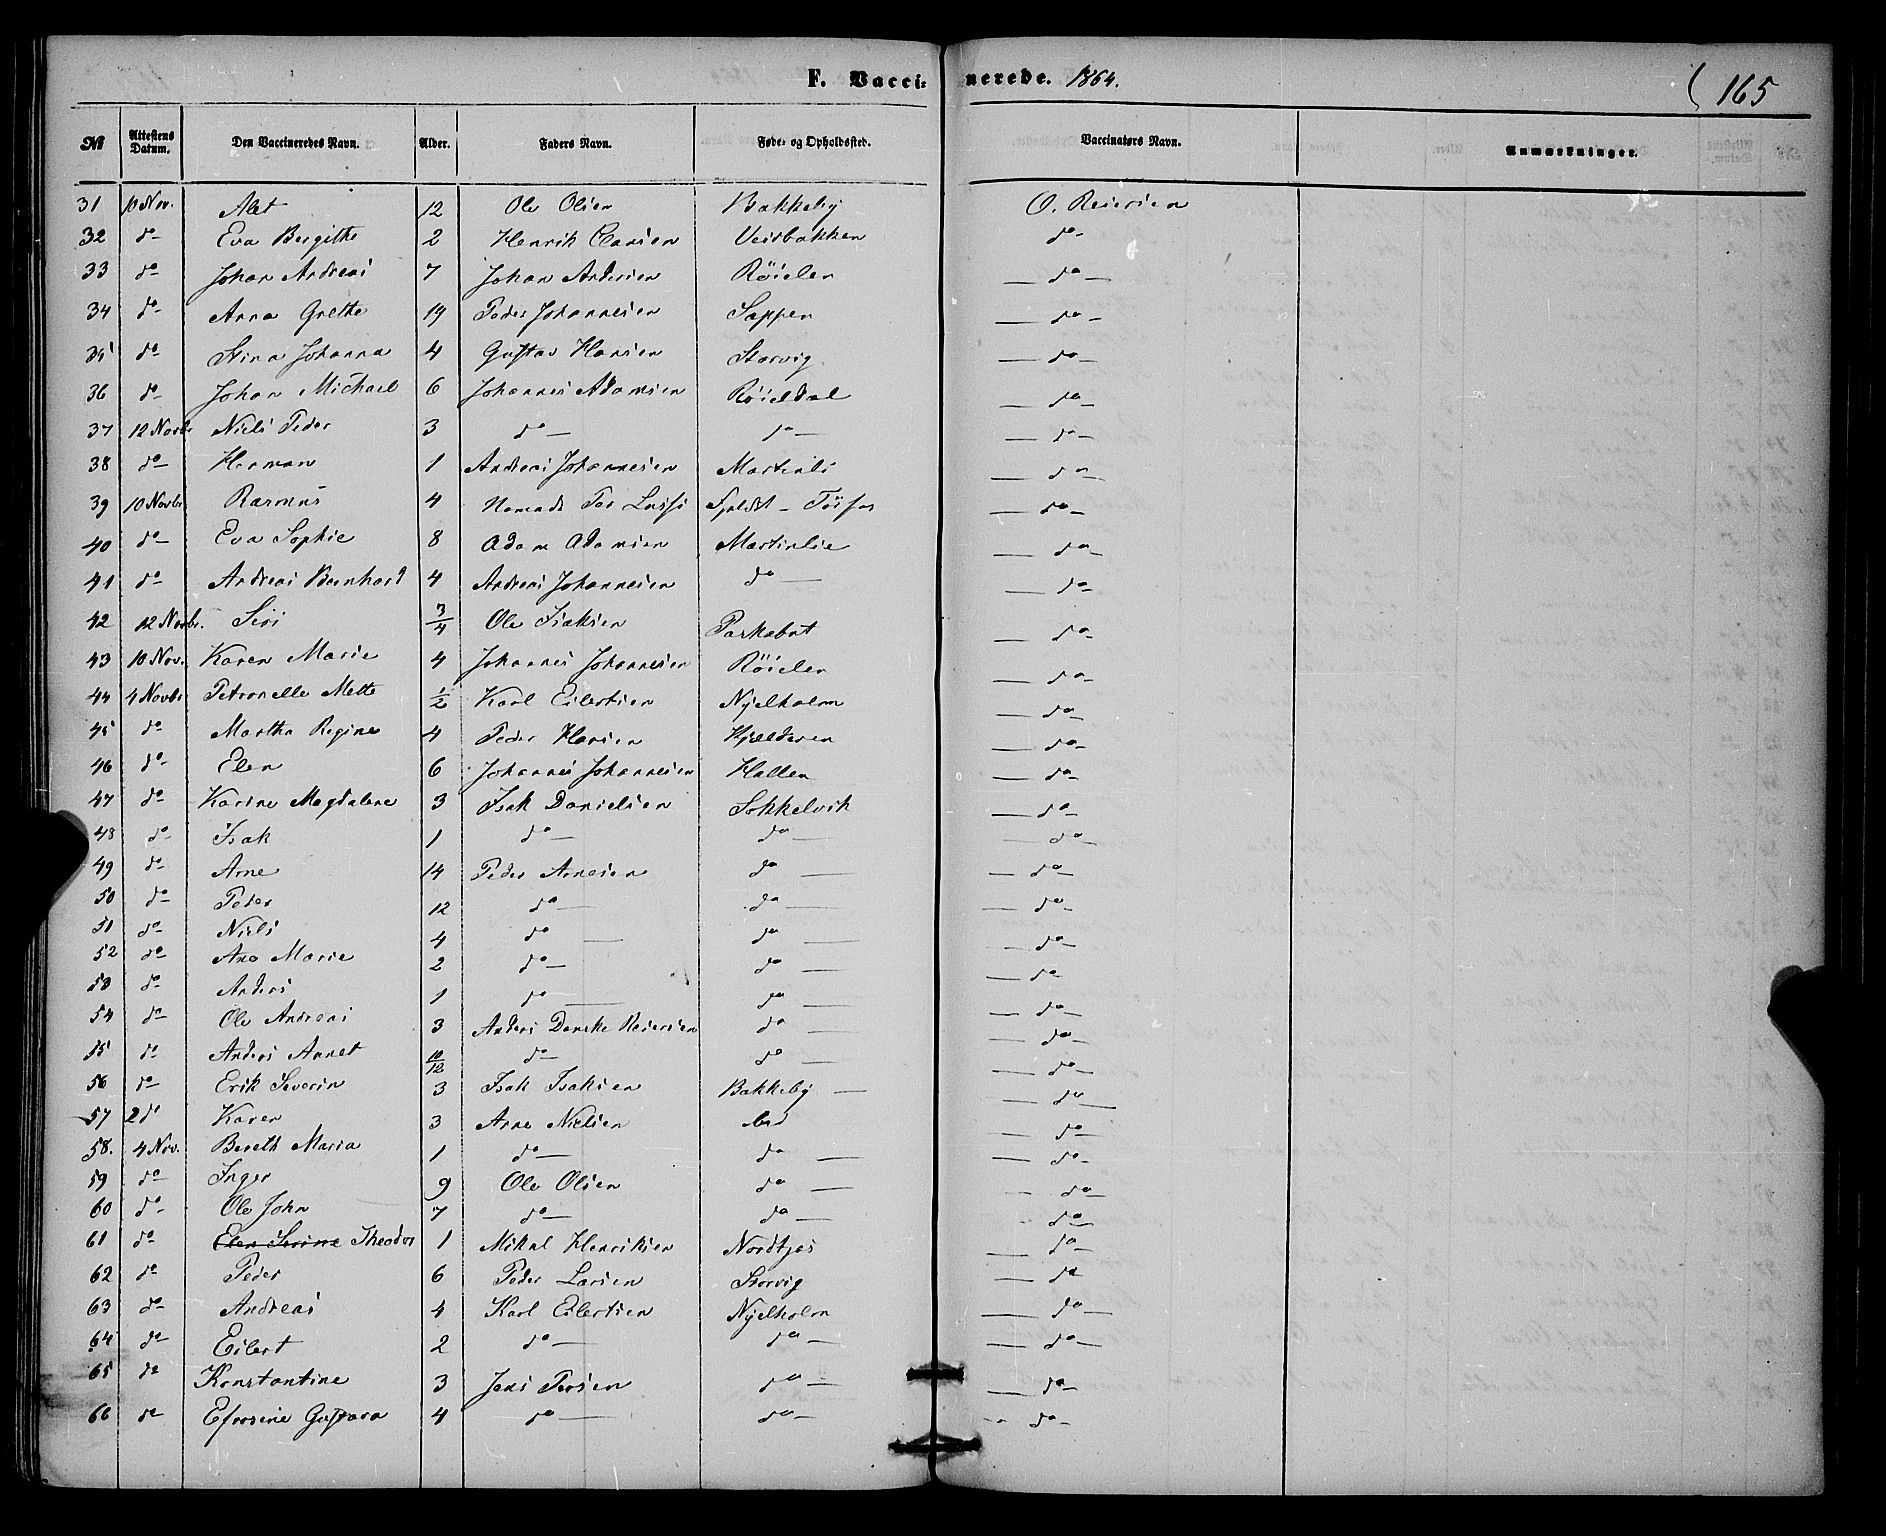 F. Vaccinerede. 1864. 165
№ Attestens Datum. Den Vaccineredes Navn. Alder. Faders Navn. Føde- og Opholdssted. Vaccinatørs Navn. Anmærkninger.
31 10 Nov. Alet 12 Ole Olsen Bakkeby O. Reiersen
32 do Eva Bergithe 2 Henrik Clausen Veidbakken do
33 do Johan Andreas 7 Johan Andersen Röielen do
34 do Anna Grethe 19 Peder Johannesen Sappen do
35 do Stina Johanna 4 Gustav Hansen Storvig do
36 do Johan Michael 6 Johannes Adamsen Röieldal do
37 12 Novbr Niels Peder 3 do do do
38 do Herman 1 Andreas Johannesen Martinli do
39 10 Novbr Rasmus 4 Nomade Per Lassi Fjeldet - do
40 do Eva Sophie 8 Adam Adamsen Martinlie do
41 do Andreas Bernhard 4 Andreas Johannesen do do
42 12 Novbr. Siri 3/4 Ole Isaksen do
43 10 Nov. Karen Marie 4 Johannes Johannesen Röielen do
44 4 Novbr Petronelle Mette 1/2 Karl Eilertsen Njelholm do
45 do Martha Regine 4 Peder Hansen Kjelderen do
46 do Elen 6 Johannes Johannesen Hallen do
47 do Karine Magdalene 3 Isak Danielsen Sokkelvik do
48 do Isak 1 do do do
49 do Arne 14 Peder Arnesen do do
50 do Peder 12 do do do
51 do Niels 4 do do do
52 do Ane Marie 2 do do do
53 do Anders 1 do do do
54 do Ole Andreas 3 Anders Danske Reiersen do do
55 do Anders Annet 10/12 do do do
56 do Erik Severin 3 Isak Isaksen Bakkeby do
57 2 do Karen 3 Arne Nielsen do
58. 4 Nov. Bereth Maria 1 do do do
59 do Inger 9 Ole Olsen do do
60 do Ole John 7 do do do
61 do Elen Serine Theodor 1 Mikal Henriksen Nordtjos do
62 do Peder 6 Peder Larsen Storvig do
63 do Andreas 4 Karl Eilertsen Njelholm do
64 do Eilert 2 do do do
65 do Konstantine 3 Jens Persen do do
66 do Efrosine Gustava 4 do do do